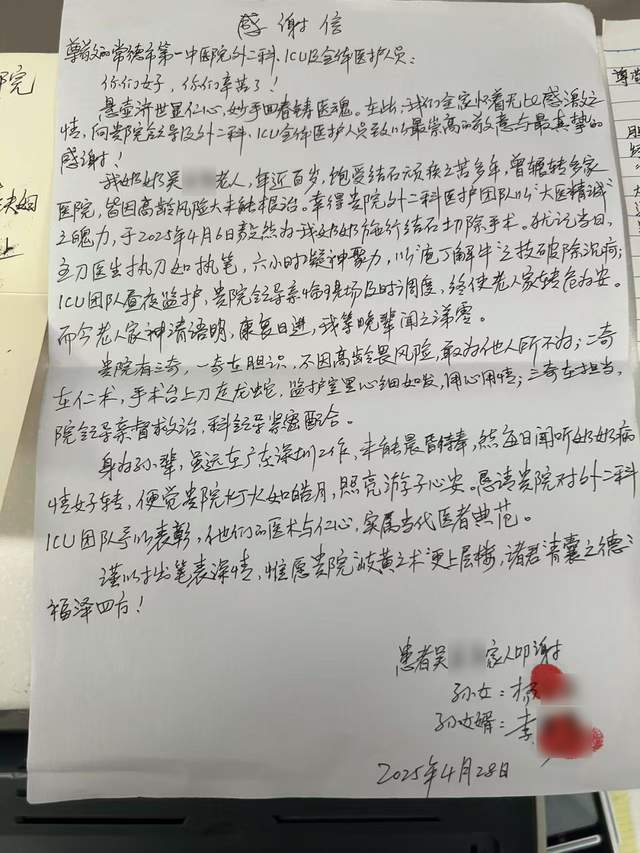 感谢信
尊敬的常德市第一中医院外二科、ICU及全体医护人员：
你们好，你们辛苦了！
悬壶济世显仁心，妙手回春铸医魂。在此，我们全家怀着无比感激之
情，向贵院领导及外二科、ICU全体医护人员致以最崇高的敬意与最真挚的
感谢！
我奶奶吴 老人，年近百岁，饱受结石顽疾之苦多年，曾辗转多家
医院，皆因高龄风险大未能根治。幸得贵院外二科医护团队以“大医精诚”
之魄力，于2025年4月6日毅然为我奶奶施行结石切除手术。犹记当日，
主刀医生执刀如执笔，六小时凝神聚力，以“庖丁解牛”之技破除沉疴；
ICU团队昼夜监护，贵院领导亲临现场及时调度，终使老人家转危为安。
而今老人家神清语明，康复日进，我等晚辈闻之涕零。
贵院有三奇，一奇在胆识，不因高龄畏风险，敢为他人所不为；二奇
在仁术，手术台上刀走龙蛇，监护室里心细如发，用心用情；三奇在担当，
院领导亲督救治，科领导紧密配合。
身为孙辈，虽远在广东深圳工作，未能晨昏侍奉，然每日闻听奶奶病
情好转，便觉贵院灯火如皓月，照亮游子心安。恳请贵院对外二科
ICU团队予以表彰，他们的医术与仁心，实属当代医者典范。
谨以拙笔表深情，惟愿贵院岐黄之术更上层楼，诸君青囊之德
福泽四方！
患者吴 家人叩谢
孙女：杨
孙女婿：李
2025年4月28日